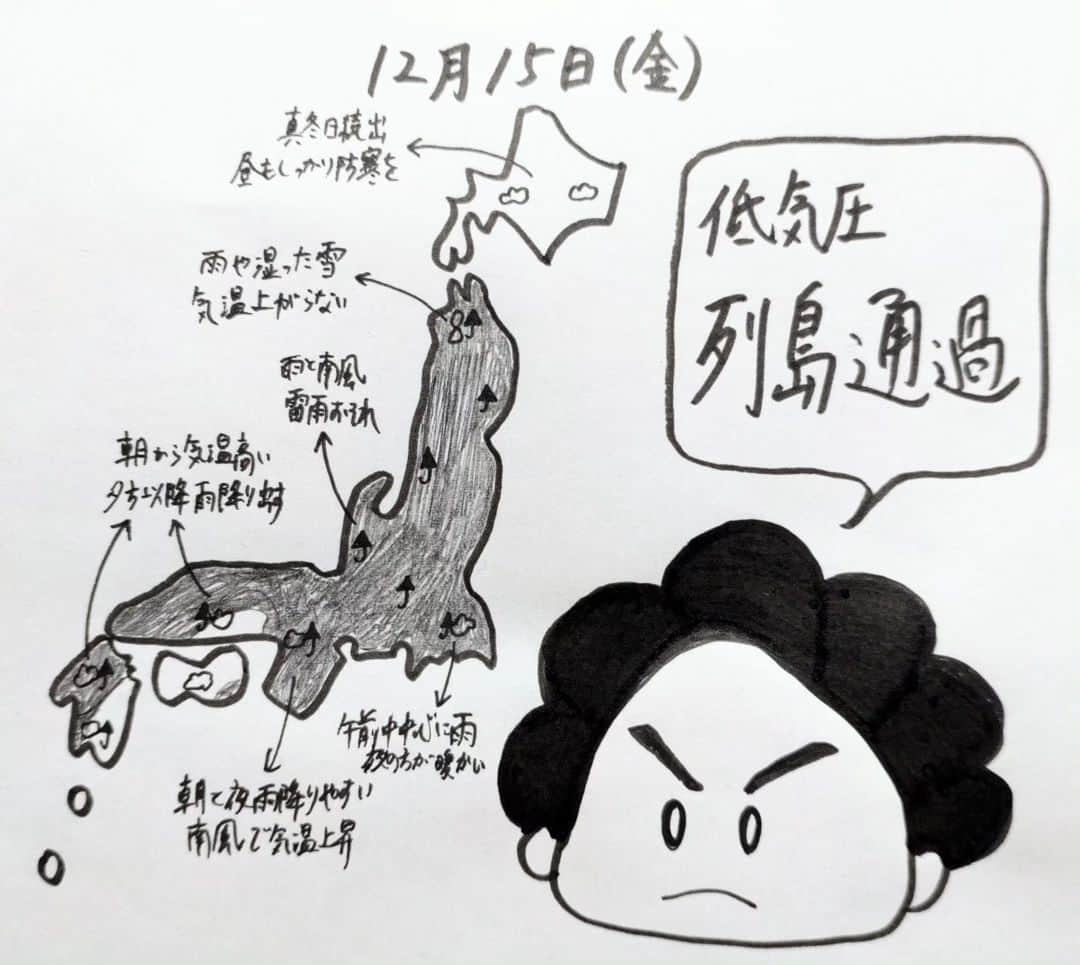 12月15日(金)
真冬日続出
昼もしっかり防寒を
低気圧
列島通過
雨や湿った雪
気温上がらない
雨と南風
雷雨おそれ
朝から気温高い
夕方以降雨降り出す
午前中中心に雨
夜の方が暖かい
朝と夜雨降りやすい
南風で気温上昇